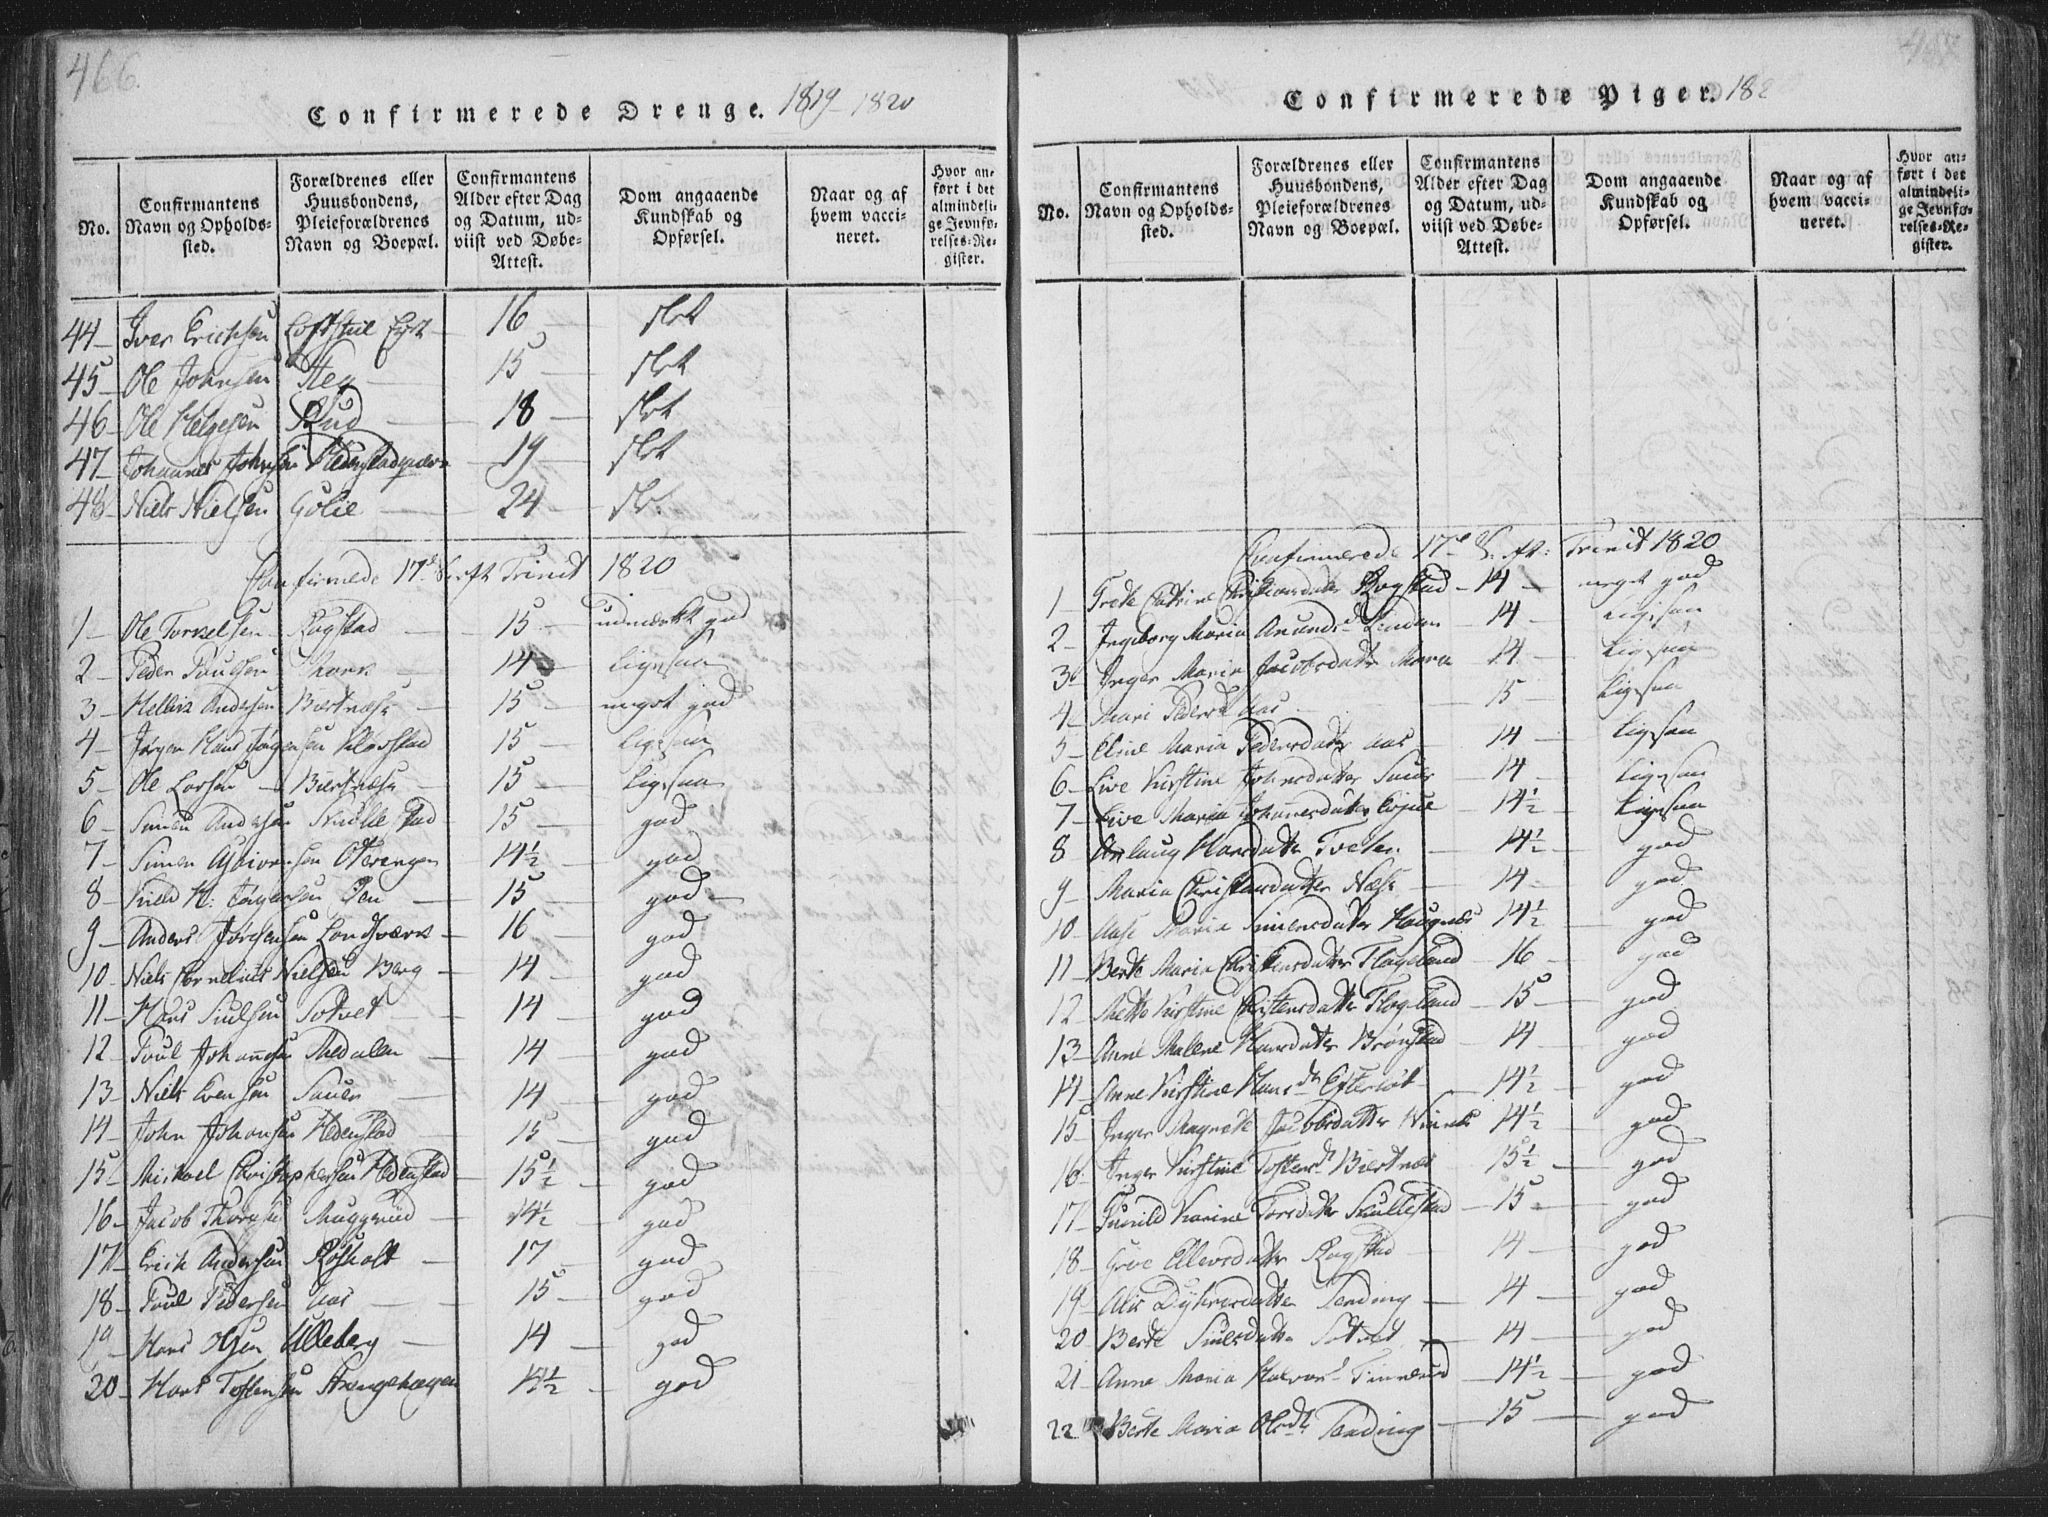 466.
Confirmerede Drenge. 1819-1820
No.
Confirmantens Navn og Opholds-sted.
Forældrenes eller Huusbondens, Pleieforældrenes Navn og Boepæl.
Confirmantens Alder efter Dag og Datum, ud-viist ved Døbe-Attest.
Dom angaaende Kundskab og Opførsel.
Naar og af hvem vacci-neret.
Hvor an-ført i det almindeli-ge Jevnfø-relses-Re-gister.
44 - Iver Erichsen 16 slet
45 - Ole Johnsen Steg - 15 slet
46 - Ole Helgesen Rud - 18 - slet
47 - Johannes Johnsen - 19 - slet
48 - Niels Nielsen Golie - 24 - sl.
Confirmede 17de S. eft Trinit 1820
1 - Ole Torkelsen Rogstad - 15 - udmærket god
2 - Peder Poulsen - 14 - ligesaa
3 - Helliz Andersen Biertnæss - 15 - meget god
4 - Jørgen Hans Jørgensen Kløvstad 15 - ligesaa
5 - Ole Larsen - Biertnæss - 15 - ligesaa
6 - Simen Andersen Skullestad - 15 - god
7 - Simen Asbiørnsen Oterengen 14½ - god
8 - H: Jørgensen - 15 - god
9 - Anders Jørgensen Londsværk - 16 - god
10 - Niels Cornelius Nielsen Berg - 14 - god
11 - Hans Siulsen Sotvet - 14 - god
12 - Poul Johannsen Medalen - 14 - god
13 - Niels Evensen Sauer - 14 - god
14 - John Johansen Hedenstad - 15 - god
15 - Michael Christophersen Hedenstad - 15½ - god
16 - Jacob Thorsen Muggerud - 14½ - god
17 - Erich Andersen Røsholt - 17 - god
18 - Poul Pedersen Aas - 15 - god
19 - Hans Olsen Ulleberg - 14 - god
20 - Hans Tostensen Strengehagen 14½ - god
Confirmerede Piger. 182
No.
Confirmantens Navn og Opholds-sted.
Forældrenes eller Huusbondens, Pleieforældrenes Navn og Boepæl.
Confirmantens Alder efter Dag og Datum, ud-viist ved Døbe-Attest.
Dom angaaende Kundskab og Opførsel.
Naar og af hvem vacci-neret.
Hvor an-ført i det almindeli-ge Jevnfø-relses-Re-gister.
Confirmerede 17de S. eft: Trinit 1820
1 - Grete Cathrine Christiansdatter Rogstad - 14 - meget god
2 - Ingeborg Maria Amundsd. Lindan - 14 - ligesaa
3 - Inger Maria Jacobsdatter Moen - 14 - ligesaa
4 - Mari Pedersd Aas - 15 - ligesaa
5 - Eline Maria Pedersdatter Aas - 14 - ligesaa
6 - Live Kirstine Johnsdatter Sauer - 14 - ligesaa
7 - Live Maria Johannesdatter Evjue - 14½ - ligesaa
8 - Anlaug Hansdatter Tveten - 14½ - god
9 - Maria Christensdatter Næss - 14 - god
10 - Aase Maria Simensdatter Haugnæs 14½ - god
11 - Berte Maria Christensdatter Flageland - 16 - god
12 - Mette Kirstine Christensdatter Flageland - 15 - god
13 - Anne Malene Hansdatter Brønstad - 14 - god
14 - Anne Kirstine Hansdr Efteløt - 14½ - god
15 - Inger Magrete Jacobsdatter 14½ - god
16 - Inger Kirstine Tostensdr Biertnæs 15½ - god
17 - Gunild Karine Torsdatter Skullestad - 15 - god
18 - Grøe Ellevsdatter Rogstad - 14 - god
19 - Alis Dyhresdatter Tanding - 14 - god
20 - Berte Siulsdatter Sotvet - 14 - god
21 - Anne Maria Halvorsd - 14½ - god
22 Berte Maria Olsdr Tanding - 15 - god